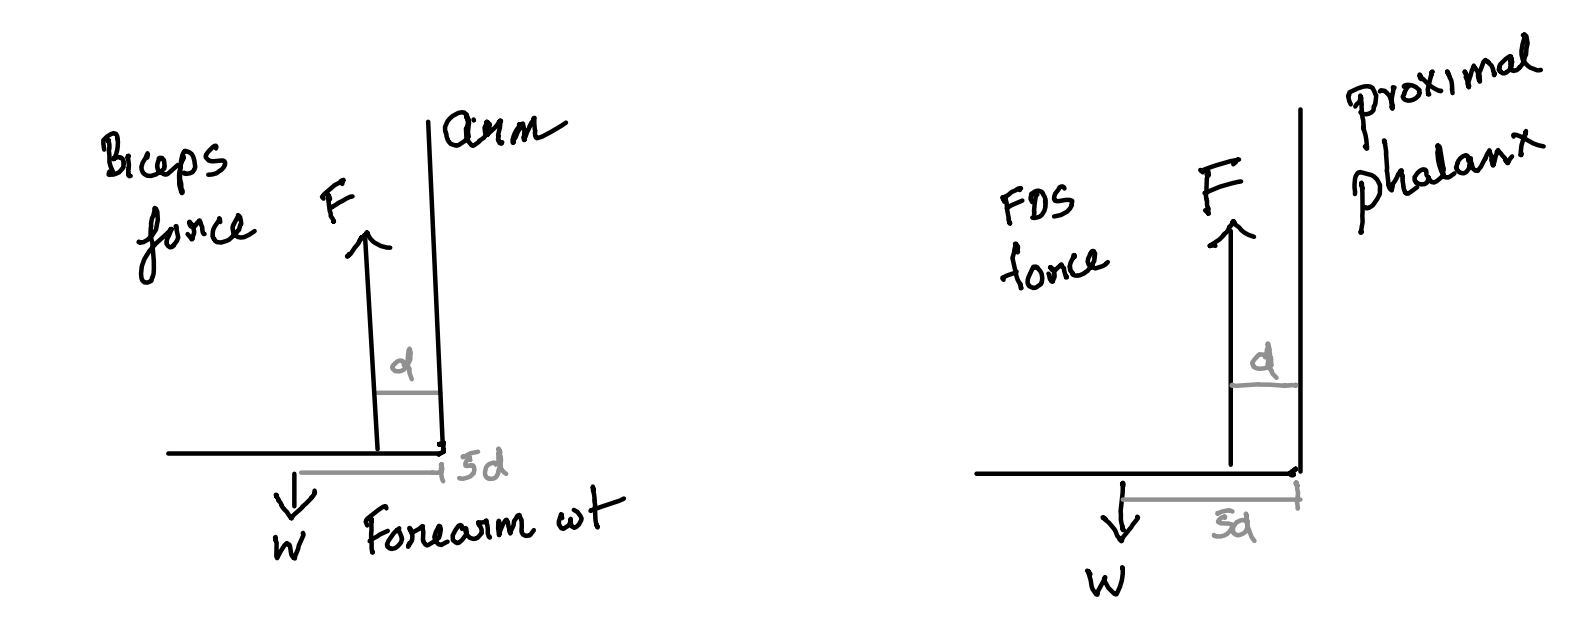 Biceps
force
F
arm
d
5d
W
Forearm wt
FDS
force
F
proximal
phalanx
d
5d
W